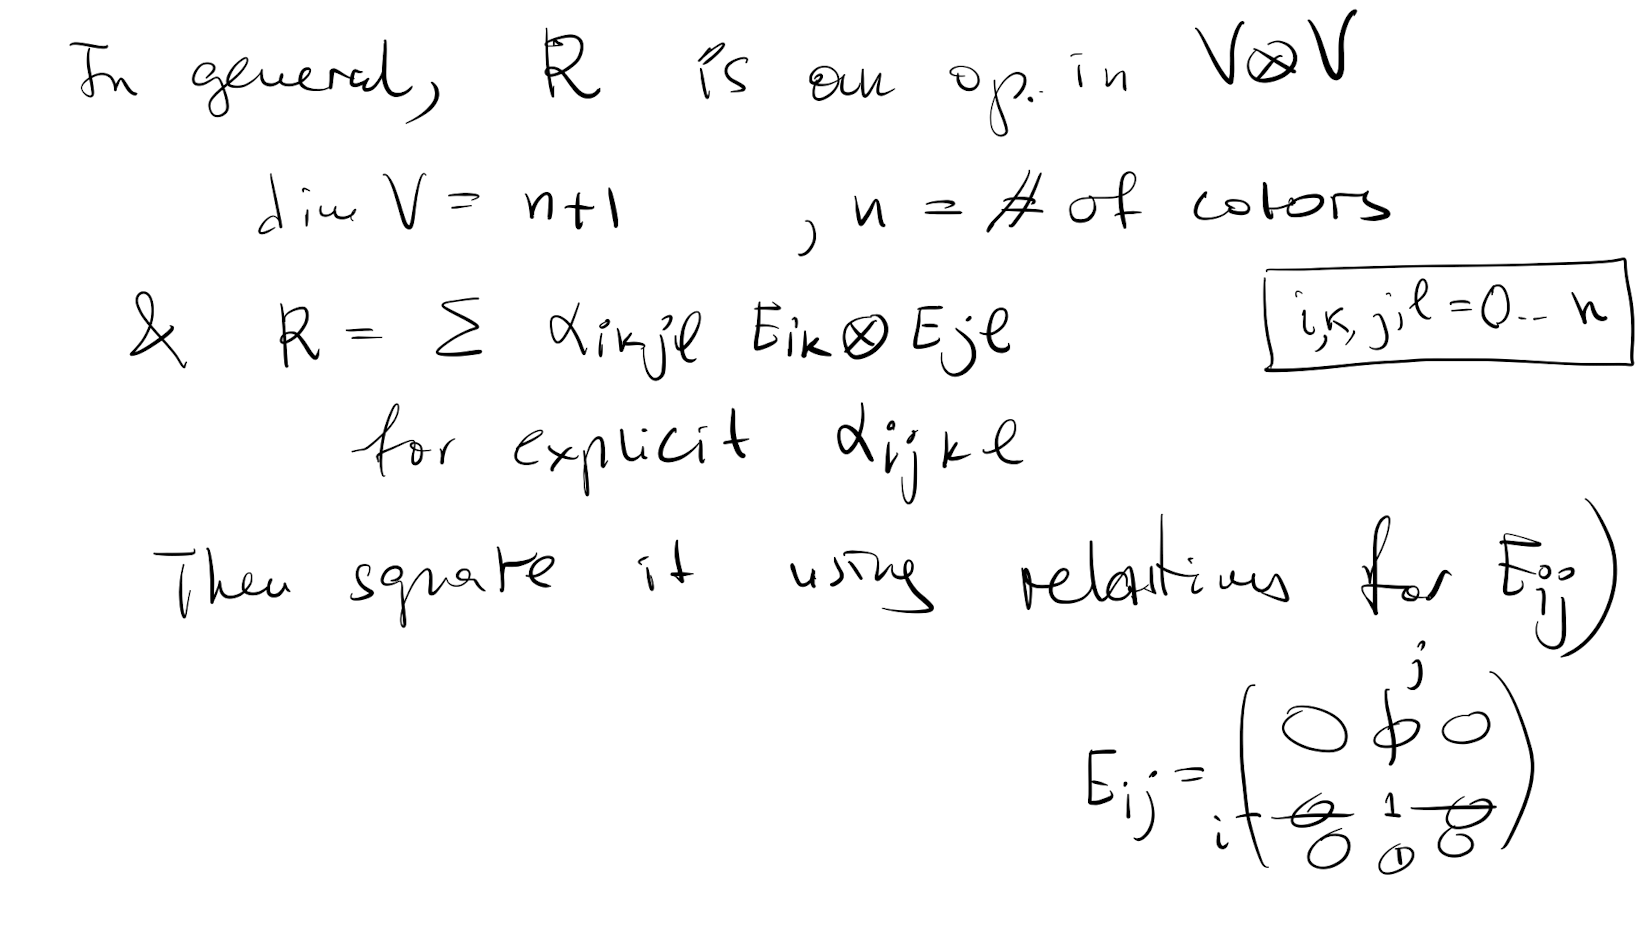 In general, R is an op. in V⊗V
dim V = n+1 , n = # of colors
& R = Σ αikjl Eik ⊗ Ejl
i,k,j,l = 0.. n
for explicit αijkl
Then square it using relations for Eij)
j
Eij = ( 0 0 0 )
i 0 1 0
0 0 0